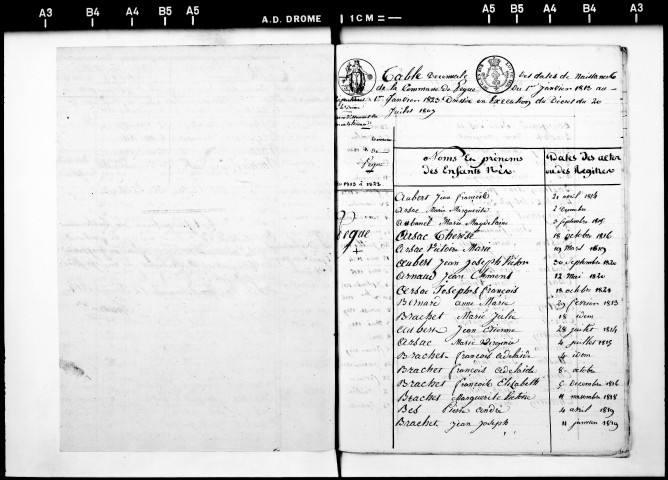 A3 B4 A4 B5 A5 A.D. DROME 1 CM = A5 B5 A4 B4 A3
Table Decennale des dates de Naissances
de la Commune de Pègue Du 1er Janvier 1813 au
1er Janvier 1823 Dressée en Execution du Décret du 20
Juillet 1807
Pègue
de 1813 à 1823
Pègue
Noms En prénoms Dates des actes
des Enfants Nés ou des Registres
Aubert Jean françois 21 avril 1814
Arsac Marie Marguerite 2
Aubanel Marie Magdelaine 3 Septembre 1815
Arsac Therèse 18 octobre 1816
Arsac Victoire Marie 19 Mars 1819
Aubert Jean Joseph 30 Septembre 1820
Arnaud Jean Clément 12 Mai 1820
Arsac Joseph françois 18 octobre 1821
Bernard anne Marie 29 fevrier 1813
Brachet Marie Julie 18 idem
Aubert Jean Etienne 28 juillet 1814
Arsac Marie Virginie 4 juillet 1815
Brachet françois adelaide 4 idem
Brachet françois adelaide 8 octobre
Brachet françoise Elizabeth 5 decembre 1816
Brachet Marguerite Victoire 11 novembre 1818
Bes Pierre andré 4 avril 1819
Brachet Jean Joseph 11 janvier 1819